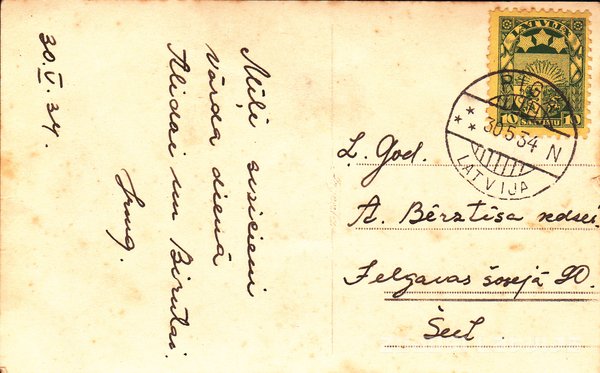 30.V.34.
Mīļi sveicieni
vārda dienā
Alidai un Birutai.
LATVIJA
10 SANTIMU 10
RĪGA
30.5.34 N
LATVIJA
L. God.
A. Bērztīsa
Jelgavas šosejā 90.
Šeit